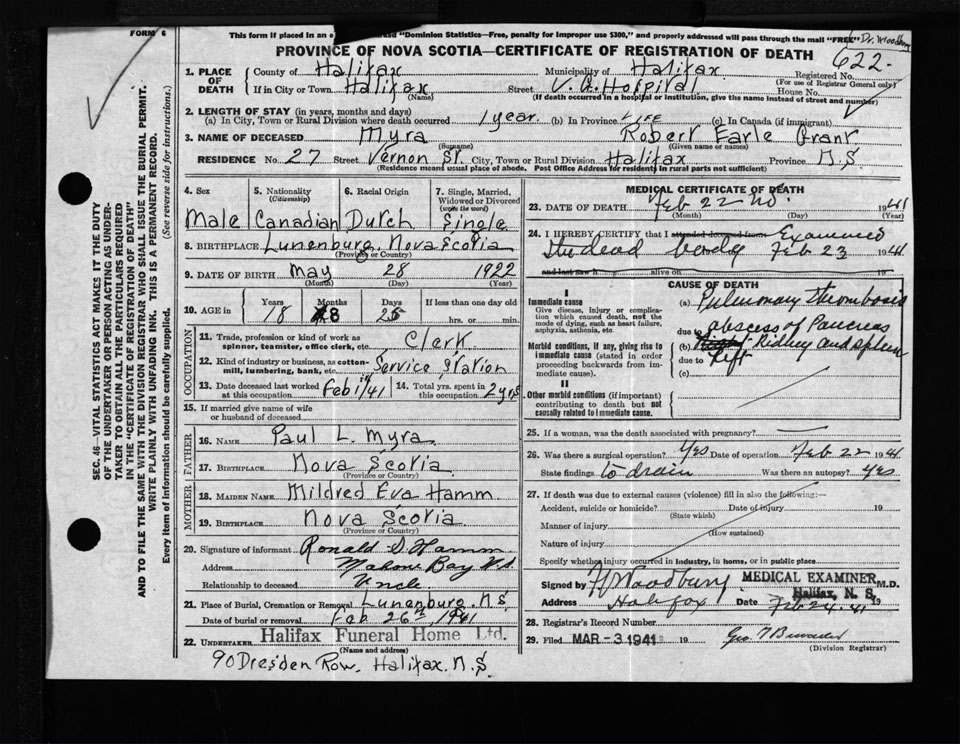 FORM 6
This form if placed in an e marked "Dominion Statistics—Free, penalty for improper use $300," and properly addressed will pass through the mail "FREE"
Dr. Woodbury
PROVINCE OF NOVA SCOTIA—CERTIFICATE OF REGISTRATION OF DEATH
622
1. PLACE OF DEATH
County of Halifax Municipality of Halifax Registered No.
(For use of Registrar General only)
If in City or Town Halifax Street V. G. Hospital House No.
(Name) (If death occurred in a hospital or institution, give the name instead of street and number)
2. LENGTH OF STAY (in years, months and days)
(a) In City, Town or Rural Division where death occurred 1 year. (b) In Province LIFE (c) In Canada (if immigrant)
3. NAME OF DECEASED Myra Robert Earle Grant
(Surname) (Given name or names)
RESIDENCE No. 27 Street Vernon St. City, Town or Rural Division Halifax Province N.S
(Residence means usual place of abode. Post Office Address for residents in rural parts not sufficient)
SEC. 46—VITAL STATISTICS ACT MAKES IT THE DUTY
OF THE UNDERTAKER OR PERSON ACTING AS UNDER-
TAKER TO OBTAIN ALL THE PARTICULARS REQUIRED
IN THE "CERTIFICATE OF REGISTRATION OF DEATH"
AND TO FILE THE SAME WITH THE DIVISION REGISTRAR WHO SHALL ISSUE THE BURIAL PERMIT.
WRITE PLAINLY WITH UNFADING INK. THIS IS A PERMANENT RECORD.
Every item of information should be carefully supplied. (See reverse side for instructions.)
4. Sex
Male
5. Nationality
(Citizenship)
Canadian
6. Racial Origin
Dutch
7. Single, Married, Widowed or Divorced
(write the word)
Single
8. BIRTHPLACE Lunenburg, Nova Scotia
(Province or Country)
9. DATE OF BIRTH May 28 1922
(Month) (Day) (Year)
10. AGE in
Years Months Days If less than one day old
18 8 25 hrs. or min.
OCCUPATION
11. Trade, profession or kind of work as
spinner, teamster, office clerk, etc. Clerk
12. Kind of industry or business, as cotton-
mill, lumbering, bank, etc. Service Station
13. Date deceased last worked at this occupation Feb 19/41
14. Total yrs. spent in this occupation 2 yrs
15. If married give name of wife
or husband of deceased
FATHER
16. NAME Paul L. Myra
17. BIRTHPLACE Nova Scotia
(Province or Country)
MOTHER
18. MAIDEN NAME Mildred Eva Hamm
19. BIRTHPLACE Nova Scotia
(Province or Country)
20. Signature of informant Ronald D. Hamm
Address Mahone Bay N.S
Relationship to deceased Uncle
21. Place of Burial, Cremation or Removal Lunenburg. N.S
Date of burial or removal Feb 26th, 1941
22. UNDERTAKER Halifax Funeral Home Ltd.
(Name and address)
90 Dresden Row, Halifax. N.S.
MEDICAL CERTIFICATE OF DEATH
23. DATE OF DEATH Feb 22nd. 1941
(Month) (Day) (Year)
24. I HEREBY CERTIFY that I attended deceased from Examined
the dead body Feb 23 1941
and last saw h alive on 19
CAUSE OF DEATH
I
Immediate cause
Give disease, injury or complica-
tion which caused death, not the
mode of dying, such as heart failure,
asphyxia, asthenia, etc.
(a) Pulmonary Thrombosis
due to abscess of Pancreas
Morbid conditions, if any, giving rise to
immediate cause (stated in order
proceeding backwards from im-
mediate cause).
(b) Kidney and spleen
due to left
(c)
II
Other morbid conditions (if important)
contributing to death but not
causally related to immediate cause.
25. If a woman, was the death associated with pregnancy?
26. Was there a surgical operation? Yes Date of operation Feb 22 1941
State findings to drain Was there an autopsy? Yes
27. If death was due to external causes (violence) fill in also the following:—
Accident, suicide or homicide? Date of injury 19
(State which)
Manner of injury
(How sustained)
Nature of injury
Specify whether injury occurred in industry, in home, or in public place
Signed by Woodbury MEDICAL EXAMINER M.D.
Halifax, N. S.
Address Halifax Date Feb 24. 41 19
28. Registrar's Record Number
29. Filed MAR -3 1941 19 Geo
(Division Registrar)